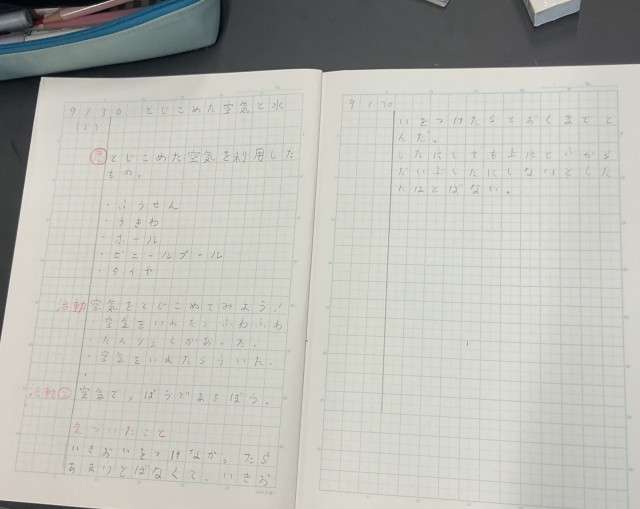 9/30 とじこめた空気と水
とじこめた空気を利用した
もの。
・ふうせん
・うきわ
・ボール
・ビニールプール
・タイヤ
活動 空気をとじこめてみよう!
・空気をいれたら、ふわふわ
・だんりょくがあった。
・空気をいれたらういた。
活動② 空気で、ぼうであそぼう。
気づいたこと
いきおいをつけなか、たら
あまりとばなくて、いきお
9/30
いをつけたらとおくまでと
んだ。
したにしても上にとぶから
だいぶしたにしないとした
にはとばない。